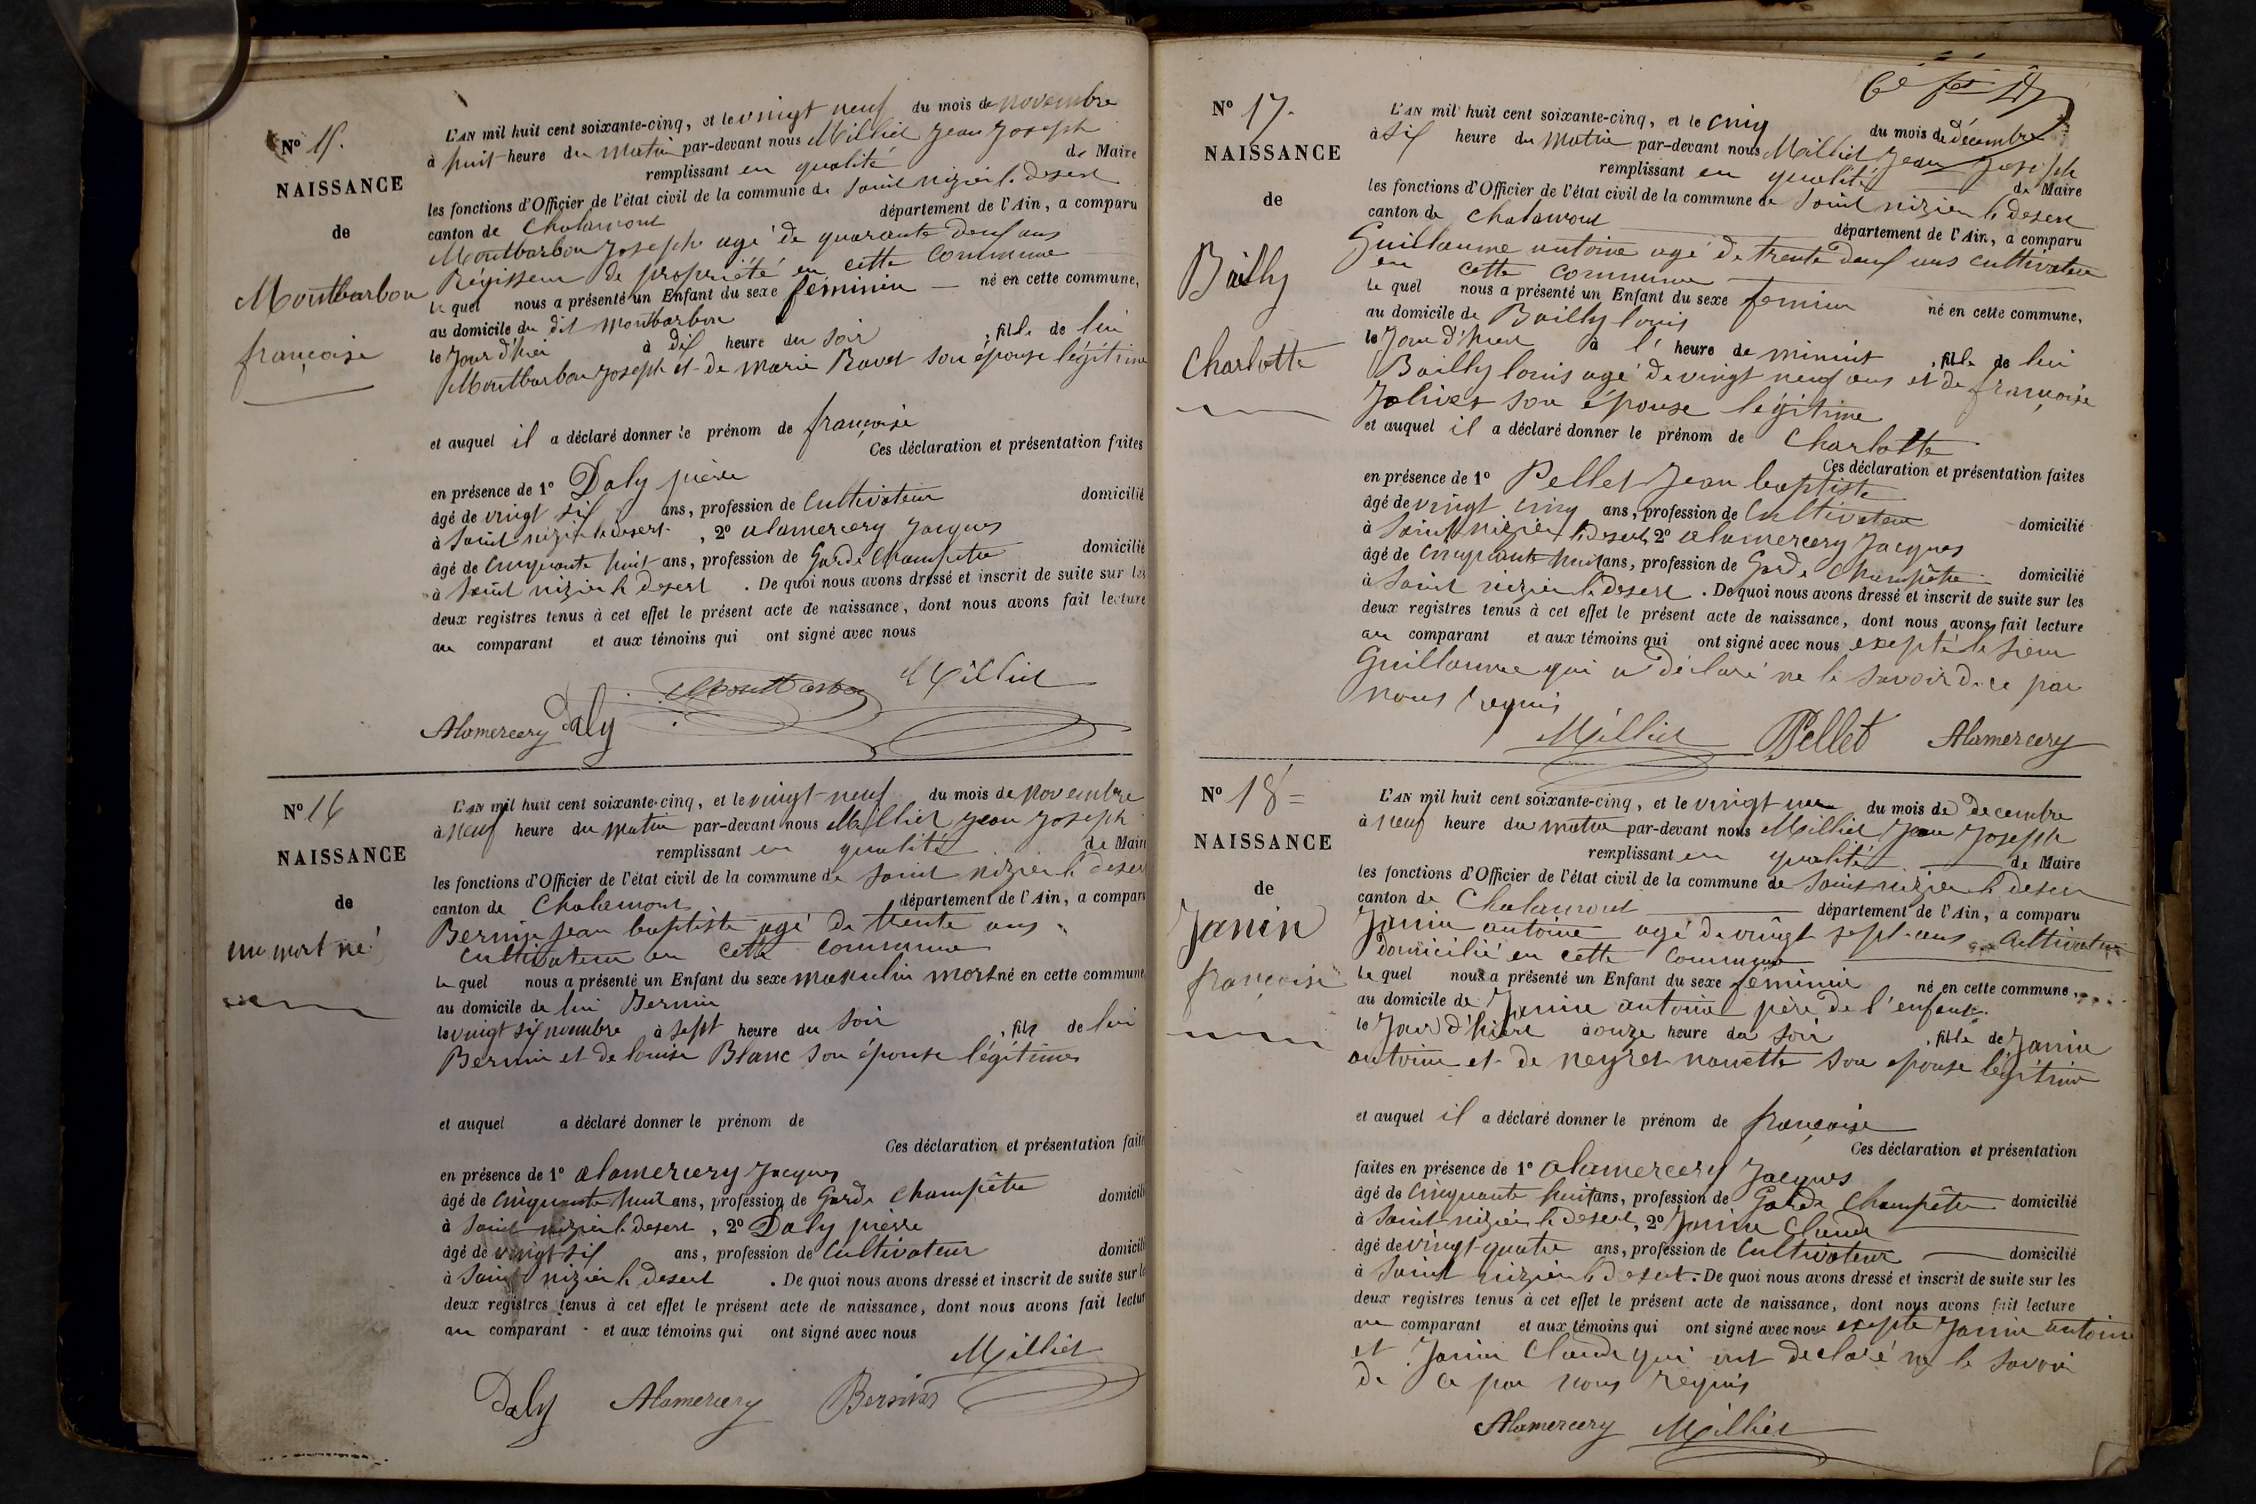 N° 15.
NAISSANCE
de
Montbarbon
françoise
L'AN mil huit cent soixante-cinq, et le vingt neuf du mois de novembre
à huit heure du matin par-devant nous Milliet Jean Joseph
remplissant en qualité de Maire
les fonctions d'Officier de l'état civil de la commune de Saint nizier le desert
canton de Chalamont département de l'Ain, a comparu
Montbarbon Joseph agé de quarante deux ans
Régisseur de propriété en cette commune
le quel nous a présenté un Enfant du sexe féminin né en cette commune,
au domicile du dit Montbarbon
le Jour d'hier à dix heure du soir, fille de lui
Montbarbon Joseph et de marie Ravet son épouse légitime
et auquel il a déclaré donner le prénom de françoise
Ces déclaration et présentation faites
en présence de 1° Daly pierre
âgé de vingt six ans, profession de Cultivateur domicilié
à Saint nizier le desert, 2° alamercery Jacques
âgé de Cinquante huit ans, profession de Garde Champêtre domicilié
à Saint nizier le desert. De quoi nous avons dressé et inscrit de suite sur les
deux registres tenus à cet effet le présent acte de naissance, dont nous avons fait lecture
au comparant et aux témoins qui ont signé avec nous
Montbarbon Milliet
Alamercery Daly
N° 16
NAISSANCE
de
un mort né
L'AN mil huit cent soixante-cinq, et le vingt-neuf du mois de novembre
à neuf heure du matin par-devant nous Milliet Jean Joseph
remplissant en qualité de Maire
les fonctions d'Officier de l'état civil de la commune de Saint nizier le desert
canton de Chalamont département de l'Ain, a comparu
Bernin Jean baptiste agé de trente ans
Cultivateur en cette commune
le quel nous a présenté un Enfant du sexe masculin mort né en cette commune
au domicile de lui Bernin
le vingt six novembre à sept heure du soir, fils de lui
Bernin et de louise Blanc son épouse légitime
et auquel a déclaré donner le prénom de
Ces déclaration et présentation faites
en présence de 1° alamercery Jacques
âgé de Cinquante huit ans, profession de Garde Champêtre domicilié
à Saint nizier le desert, 2° Daly pierre
âgé de vingt six ans, profession de Cultivateur domicilié
à Saint nizier le desert. De quoi nous avons dressé et inscrit de suite sur les
deux registres tenus à cet effet le présent acte de naissance, dont nous avons fait lecture
au comparant et aux témoins qui ont signé avec nous
Milliet
Daly Alamercery Bernin
N° 17.
NAISSANCE
de
Bailly
Charlotte
L'AN mil huit cent soixante-cinq, et le cinq du mois de décembre
à six heure du matin par-devant nous Milliet Jean Joseph
remplissant en qualité de Maire
les fonctions d'Officier de l'état civil de la commune de Saint nizier le desert
canton de Chalamont département de l'Ain, a comparu
Guillaume antoine agé de trente deux ans cultivateur
en cette commune
le quel nous a présenté un Enfant du sexe feminin né en cette commune,
au domicile de Bailly louis
le Jour d'hier à l' heure de minuit, fille de lui
Bailly louis agé de vingt neuf ans et de françoise
Jolivet son épouse légitime
et auquel il a déclaré donner le prénom de Charlotte
Ces déclaration et présentation faites
en présence de 1° Pellet Jean baptiste
âgé de vingt cinq ans, profession de Cultivateur domicilié
à Saint nizier le desert, 2° alamercery Jacques
âgé de cinquante huit ans, profession de Garde Champêtre domicilié
à Saint nizier le desert. De quoi nous avons dressé et inscrit de suite sur les
deux registres tenus à cet effet le présent acte de naissance, dont nous avons fait lecture
au comparant et aux témoins qui ont signé avec nous excepté le sieur
Guillaume qui a déclaré ne le savoir de ce par
nous requis
Milliet Pellet Alamercery
N° 18
NAISSANCE
de
Janin
françoise
L'AN mil huit cent soixante-cinq, et le vingt un du mois de decembre
à neuf heure du matin par-devant nous Milliet Jean Joseph
remplissant en qualité de Maire
les fonctions d'Officier de l'état civil de la commune de Saint nizier le desert
canton de Chalamont département de l'Ain, a comparu
Janin antoine agé de vingt sept ans Cultivateur
domicilié en cette Commune
le quel nous a présenté un Enfant du sexe féminin né en cette commune,
au domicile de Janin antoine père de l'enfant
le Jour d'hier à onze heure du soir, fille de Janin
antoine et de neyret nanette son epouse légitime
et auquel il a déclaré donner le prénom de françoise
Ces déclaration et présentation
faites en présence de 1° alamercery Jacques
âgé de Cinquante huit ans, profession de Garde Champêtre domicilié
à Saint nizier le desert, 2° Janin Claude
âgé de vingt-quatre ans, profession de Cultivateur domicilié
à Saint nizier le desert. De quoi nous avons dressé et inscrit de suite sur les
deux registres tenus à cet effet le présent acte de naissance, dont nous avons fait lecture
au comparant et aux témoins qui ont signé avec nous excepté Janin antoine
et Janin Claude qui ont declaré ne le savoir
de ce par nous requis
Alamercery Milliet